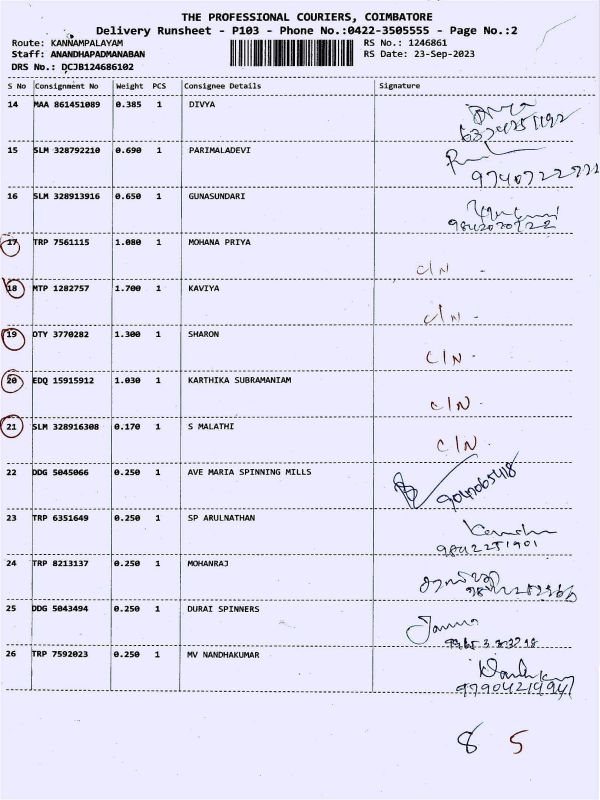 THE PROFESSIONAL COURIERS, COIMBATORE
Delivery Runsheet - P103 - Phone No.:0422-3505555 - Page No.:2
Route: KANNAMPALAYAM RS No.: 1246861
Staff: ANANDHAPADMANABAN RS Date: 23-Sep-2023
DRS No.: DCJB124686102
S No Consignment No Weight PCS Consignee Details Signature
14 MAA 861451089 0.385 1 DIVYA
15 SLM 328792210 0.690 1 PARIMALADEVI
16 SLM 328913916 0.650 1 GUNASUNDARI
17 TRP 7561115 1.080 1 MOHANA PRIYA C/N -
18 MTP 1282757 1.700 1 KAVIYA C/N -
19 DTY 3770282 1.300 1 SHARON C/N -
20 EDQ 15915912 1.030 1 KARTHIKA SUBRAMANIAM C/N -
21 SLM 328916308 0.170 1 S MALATHI C/N -
22 DDG 5045066 0.250 1 AVE MARIA SPINNING MILLS
23 TRP 6351649 0.250 1 SP ARULNATHAN
9842251901
24 TRP 8213137 0.250 1 MOHANRAJ
25 DDG 5043494 0.250 1 DURAI SPINNERS
26 TRP 7592023 0.250 1 MV NANDHAKUMAR
8 5